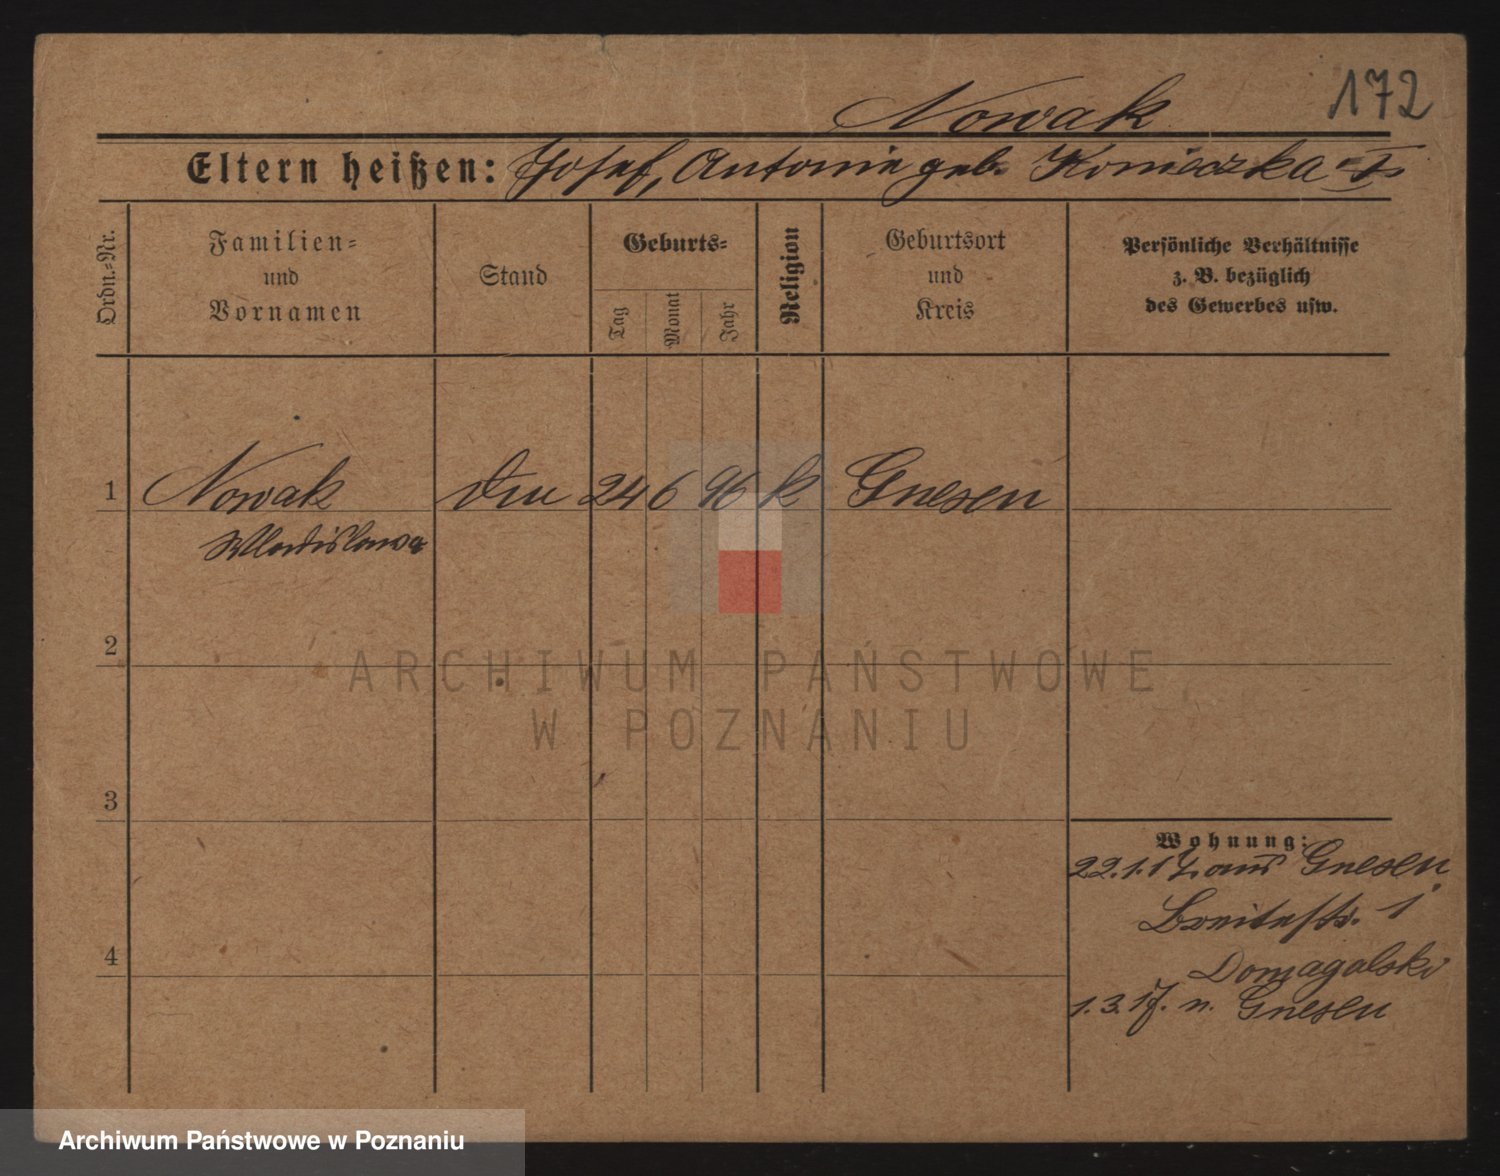 172
Nowak
Eltern heißen: Josef, Antonie geb. Konieczka
Ordn.-Nr.
Familien-
und
Vornamen
Stand
Geburts-
Tag
Monat
Jahr
Religion
Geburtsort
und
Kreis
Persönliche Verhältnisse
z. B. bezüglich
des Gewerbes usw.
1 Nowak 24 6 96 k Gnesen
Wladislawa
2
ARCHIWUM PAŃSTWOWE
W POZNANIU
3
Wohnung:
22.1.17. aus Gnesen
Breitestr. 1
Domagalski
4
1.3.17. n. Gnesen
Archiwum Państwowe w Poznaniu